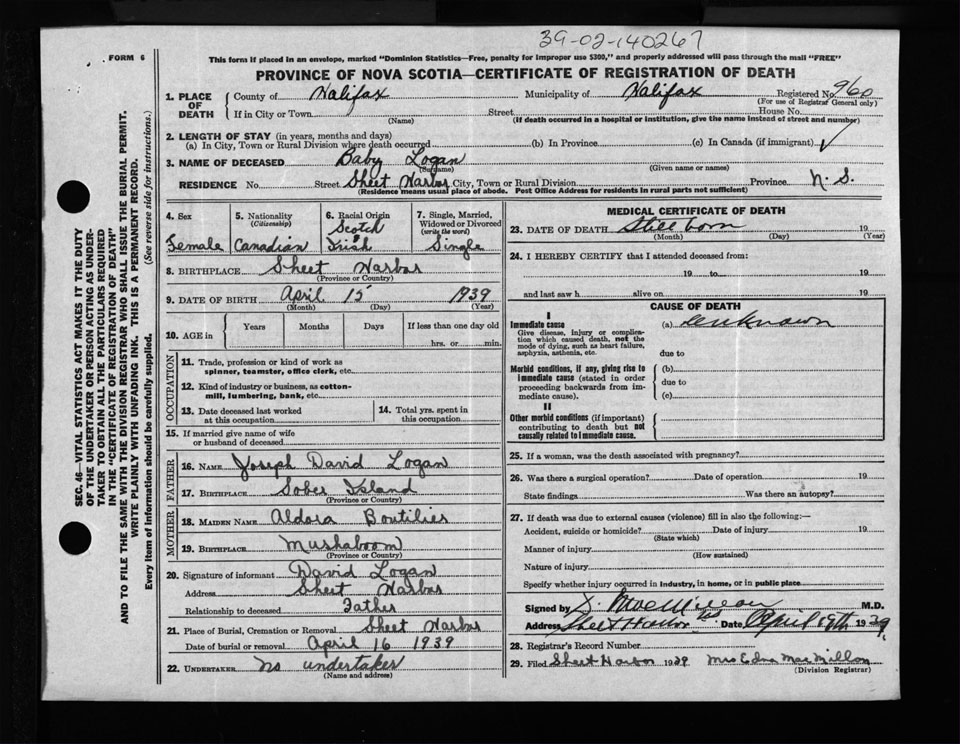 39-02-140267
FORM 6
This form if placed in an envelope, marked "Dominion Statistics—Free, penalty for improper use $300," and properly addressed will pass through the mail "FREE"
PROVINCE OF NOVA SCOTIA—CERTIFICATE OF REGISTRATION OF DEATH
1. PLACE OF DEATH
County of Halifax Municipality of Halifax Registered No. 960
(For use of Registrar General only)
If in City or Town Street House No.
(Name) (If death occurred in a hospital or institution, give the name instead of street and number)
2. LENGTH OF STAY (in years, months and days)
(a) In City, Town or Rural Division where death occurred (b) In Province (c) In Canada (if immigrant) ✓
3. NAME OF DECEASED Baby Logan
(Surname) (Given name or names)
RESIDENCE No. Street Sheet Harbor City, Town or Rural Division Province N. S.
(Residence means usual place of abode. Post Office Address for residents in rural parts not sufficient)
4. Sex Female
5. Nationality (Citizenship) Canadian
6. Racial Origin Scotch Irish
7. Single, Married, Widowed or Divorced (write the word) Single
8. BIRTHPLACE Sheet Harbor
(Province or Country)
9. DATE OF BIRTH April 15 1939
(Month) (Day) (Year)
10. AGE in Years Months Days If less than one day old
hrs. or min.
OCCUPATION
11. Trade, profession or kind of work as spinner, teamster, office clerk, etc.
12. Kind of industry or business, as cotton-mill, lumbering, bank, etc.
13. Date deceased last worked at this occupation
14. Total yrs. spent in this occupation
15. If married give name of wife or husband of deceased
FATHER
16. NAME Joseph David Logan
17. BIRTHPLACE Sober Island
(Province or Country)
MOTHER
18. MAIDEN NAME Aldora Boutilier
19. BIRTHPLACE Mushaboom
(Province or Country)
20. Signature of informant David Logan
Address Sheet Harbor
Relationship to deceased Father
21. Place of Burial, Cremation or Removal Sheet Harbor
Date of burial or removal April 16 1939
22. UNDERTAKER No undertaker
(Name and address)
MEDICAL CERTIFICATE OF DEATH
23. DATE OF DEATH Still born 19
(Month) (Day) (Year)
24. I HEREBY CERTIFY that I attended deceased from:
19 to 19
and last saw h alive on 19
CAUSE OF DEATH
I
Immediate cause
Give disease, injury or complication which caused death, not the mode of dying, such as heart failure, asphyxia, asthenia, etc.
(a) unknown
due to
Morbid conditions, if any, giving rise to immediate cause (stated in order proceeding backwards from immediate cause).
(b)
due to
(c)
II
Other morbid conditions (if important) contributing to death but not causally related to immediate cause.
25. If a woman, was the death associated with pregnancy?
26. Was there a surgical operation? Date of operation 19
State findings Was there an autopsy?
27. If death was due to external causes (violence) fill in also the following:—
Accident, suicide or homicide? Date of injury 19
(State which)
Manner of injury
(How sustained)
Nature of injury
Specify whether injury occurred in industry, in home, or in public place
Signed by M.D.
Address Sheet Harbor Date April 19th 1939
28. Registrar's Record Number
29. Filed Sheet Harbor 1939 Mrs Edna MacMillan
(Division Registrar)
SEC. 46—VITAL STATISTICS ACT MAKES IT THE DUTY
OF THE UNDERTAKER OR PERSON ACTING AS UNDER-
TAKER TO OBTAIN ALL THE PARTICULARS REQUIRED
IN THE "CERTIFICATE OF REGISTRATION OF DEATH"
AND TO FILE THE SAME WITH THE DIVISION REGISTRAR WHO SHALL ISSUE THE BURIAL PERMIT.
WRITE PLAINLY WITH UNFADING INK. THIS IS A PERMANENT RECORD.
Every item of information should be carefully supplied. (See reverse side for instructions.)